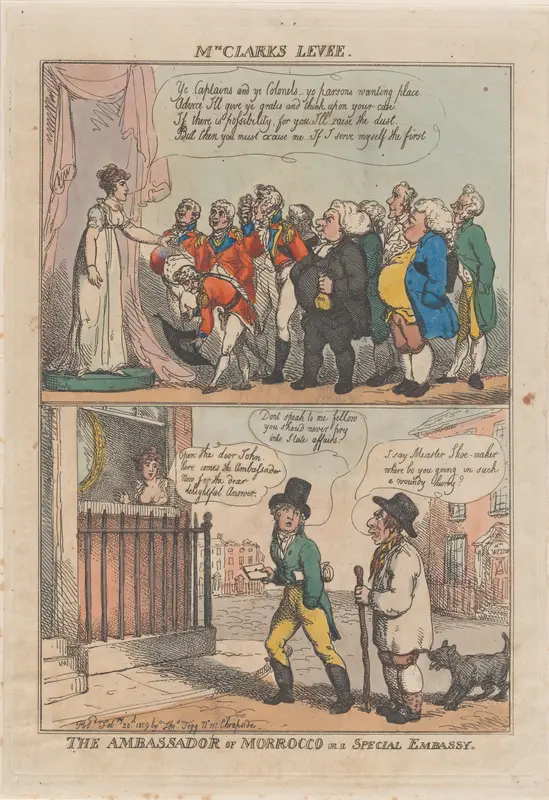 Mrs CLARKS LEVEE.
Ye Captains and ye Colonels - ye parsons wanting place
Advice I'll give ye gratis and think upon your case
If there is possibility for you I'll raise the dust
But then you must excuse me If I serve myself the first
Dont speak to me fellow
you should never pry
into State affairs
Open the door John
here comes the Ambassador
Now for the dear
delightful Answer.
I say Measter Shoe-maker
where be you going in such
a woundy Hurry?
Pubd Feby 23d 1809 by Thos Tegg No 111 Cheapside
THE AMBASSADOR OF MORROCCO on a SPECIAL EMBASSY.